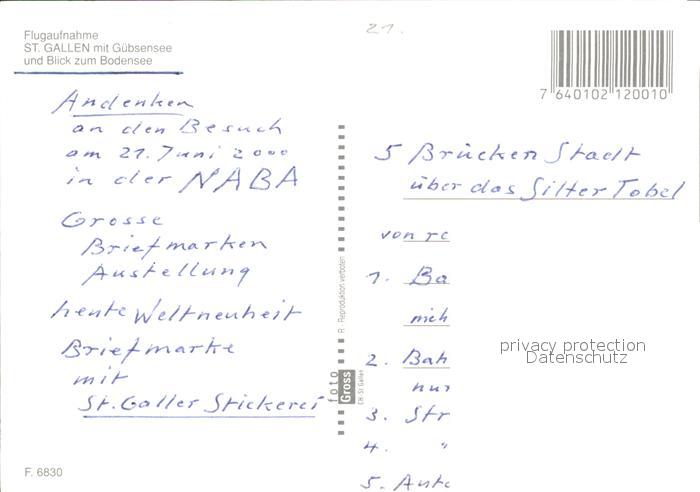 Flugaufnahme
ST. GALLEN mit Gübsensee
und Blick zum Bodensee
21.
7 640102 120010
Andenken
an den Besuch
am 21. Juni 2000
in der NABA
Grosse
Briefmarken
Austellung
heute Weltneuheit
Briefmarke
mit
St. Galler Stickerei
F. 6830
R Reproduktion verboten
foto
Gross
CH-St. Gallen
5 Brücken Stadt
über das Sitter Tobel
von re
1. Ba
mich
2. Bah
nur
3. Str
4. "
5. Auto
privacy protection
Datenschutz